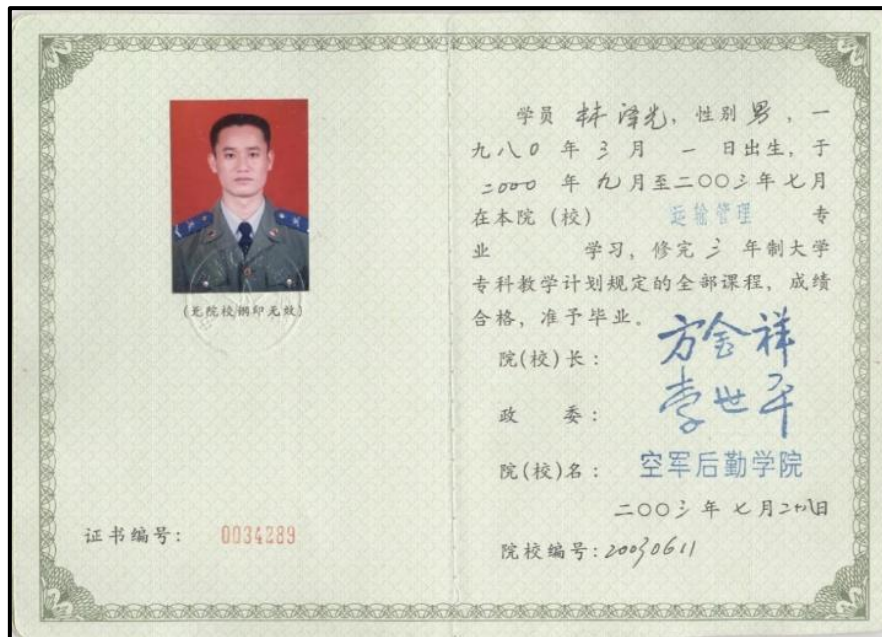 (无院校钢印无效)
证书编号： 0034289
学员 林泽光，性别 男，一
九八0 年 三 月 一 日出生，于
二000 年 九 月至二〇〇三年七月
在本院（校） 运输管理 专
业 学习，修完 三 年制大学
专科教学计划规定的全部课程，成绩
合格，准予毕业。
院(校)长： 方金祥
政 委： 李世平
院(校)名： 空军后勤学院
二〇〇三 年 七 月 二十八日
院校编号：20030611